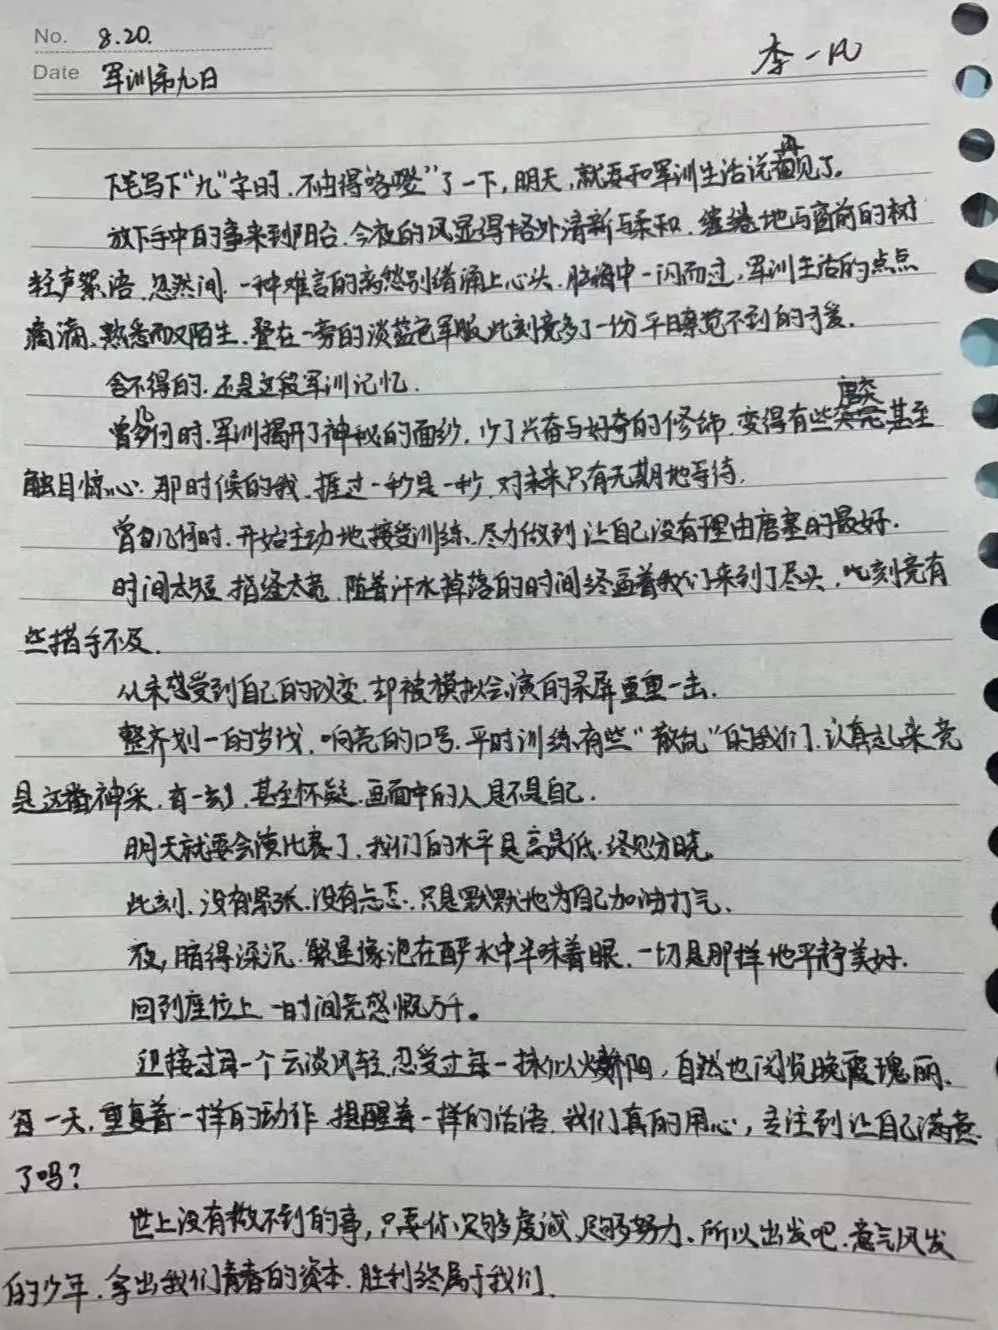 No. 8.20.
Date 军训第九日
李一凡
下笔写下“九”字时，不由得“咯噔”了一下，明天，就要和军训生活说再见了。
放下手中的事来到阳台，今夜的风显得格外清新与柔和，缱绻地与窗前的树
轻声絮语，忽然间，一种难言的离愁别绪涌上心头，脑海中一闪而过，军训生活的点点
滴滴，熟悉而又陌生，叠在一旁的淡蓝色军服此刻竟多了一份平日察觉不到的可爱。
舍不得的，还是这段军训记忆。
曾几何时，军训揭开了神秘的面纱，少了兴奋与好奇的修饰，变得有些唐突甚至
触目惊心，那时候的我，捱过一秒是一秒，对未来只有无期地等待。
曾几何时，开始主动地接受训练，尽力做到让自己没有理由唐塞的最好。
时间太短，指缝太宽，随着汗水掉落的时间终逼着我们来到了尽头，此刻竟有
些措手不及。
从未感受到自己的改变，却被模拟会演的录屏重重一击。
整齐划一的步伐，响亮的口号，平时训练有些“散乱”的我们，认真起来竟
是这番神采，有一刻，甚至怀疑，画面中的人是不是自己。
明天就要会演比赛了，我们的水平是高是低，终见分晓。
此刻，没有紧张，没有忐忑，只是默默地为自己加油打气。
夜，暗得深沉，繁星像泡在酽水中半眯着眼，一切是那样地平静美好。
回到座位上，一时间竟感慨万千。
迎接过每一个云淡风轻，忍受过每一抹似火骄阳，自然也阅览晚霞瑰丽。
每一天，重复着一样的动作，提醒着一样的话语，我们真的用心，专注到让自己满意
了吗？
世上没有做不到的事，只要你足够虔诚，足够努力，所以出发吧，意气风发
的少年，拿出我们青春的资本，胜利终属于我们。